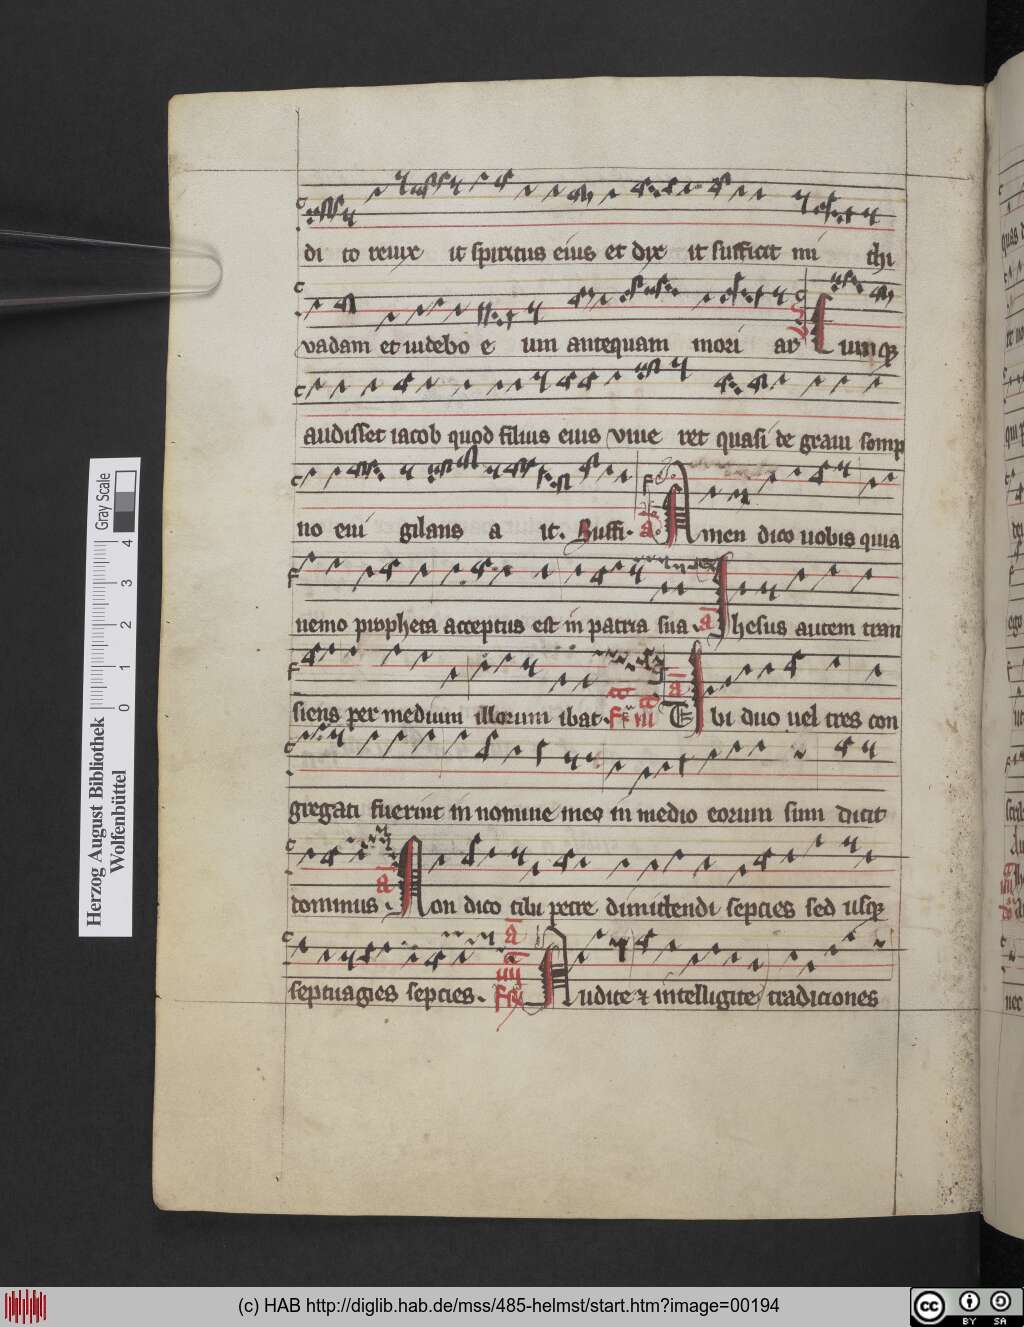 di to reuix it spiritus eius et dix it sufficit mi chi
vadam et uidebo e um antequam mori ar Cumq3
audisset iacob quod filius eius viue ret quasi de graui somp
no eui gilans a it. Suffi. a. Amen dico uobis quia
nemo propheta acceptus est in patria sua. a Ihesus autem tran
siens per medium illorum ibat. a Vbi duo uel tres con
gregati fuerint in nomine meo in medio eorum sum dicit
dominus. a Non dico tibi petre dimittendi septies sed usq3
septuagies septies. a Audite et intelligite tradiciones
Herzog August Bibliothek
Wolfenbüttel
Gray Scale
0 1 2 3 4
(c) HAB http://diglib.hab.de/mss/485-helmst/start.htm?image=00194
cc BY SA